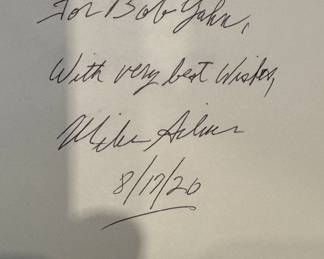 For Bob Yahn,
With very best Wishes,
Mike
8/17/20